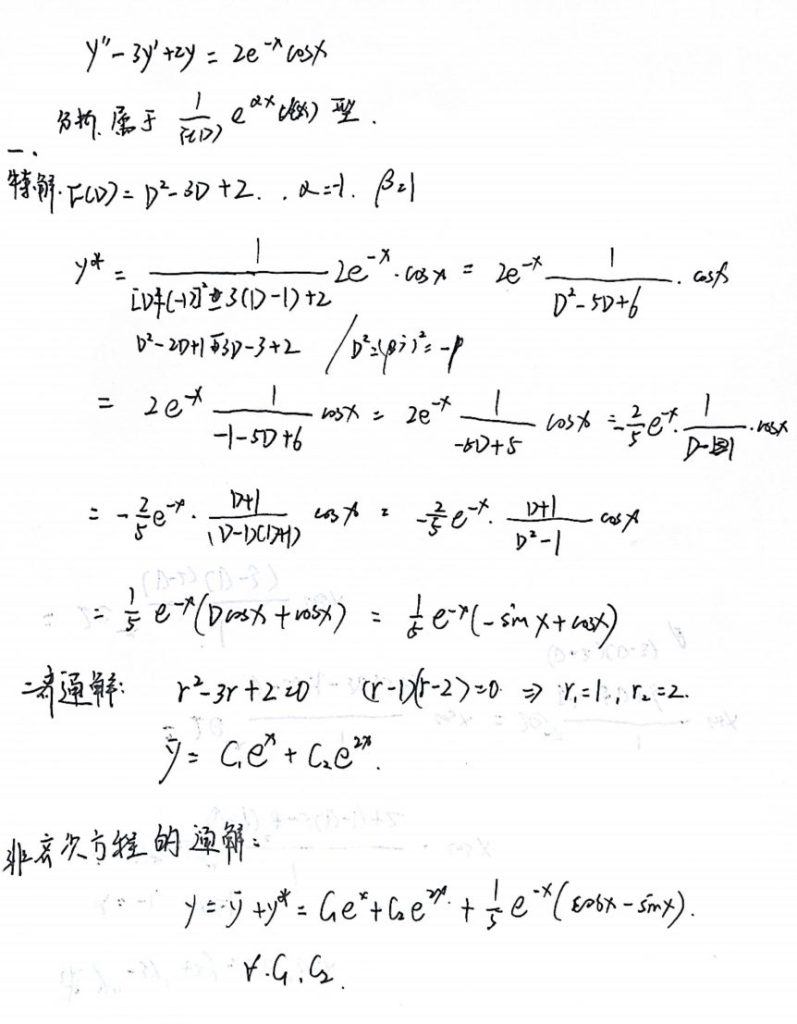 y''-3y'+2y = 2e^{-x}cosx
分析. 属于 \frac{1}{F(D)} e^{αx}v(x) 型.
一、
特解. F(D) = D²-3D+2. . α=-1. β=1
y* = \frac{1}{[D+(-1)]²-3(D-1)+2} 2e^{-x}·cosx = 2e^{-x} \frac{1}{D²-5D+6}. cosx
D²-2D+1-3D-3+2 / D²=(βi)²=-1
= 2e^{-x} \frac{1}{-1-5D+6} cosx = 2e^{-x} \frac{1}{-5D+5} cosx = -\frac{2}{5}e^{-x}. \frac{1}{D-1}.cosx
= -\frac{2}{5}e^{-x}. \frac{D+1}{(D-1)(D+1)} cosx = -\frac{2}{5}e^{-x}. \frac{D+1}{D²-1} cosx
= \frac{1}{5} e^{-x}(Dcosx+cosx) = \frac{1}{5} e^{-x}(-sinx+cosx)
二、齐通解: r²-3r+2=0 (r-1)(r-2)=0 ⇒ r₁=1, r₂=2.
ȳ = C₁e^{x} + C₂e^{2x}.
非齐次方程的通解:
y = ȳ+y* = C₁e^{x}+C₂e^{2x}+\frac{1}{5}e^{-x}(cosx-sinx).
∀.C₁,C₂.